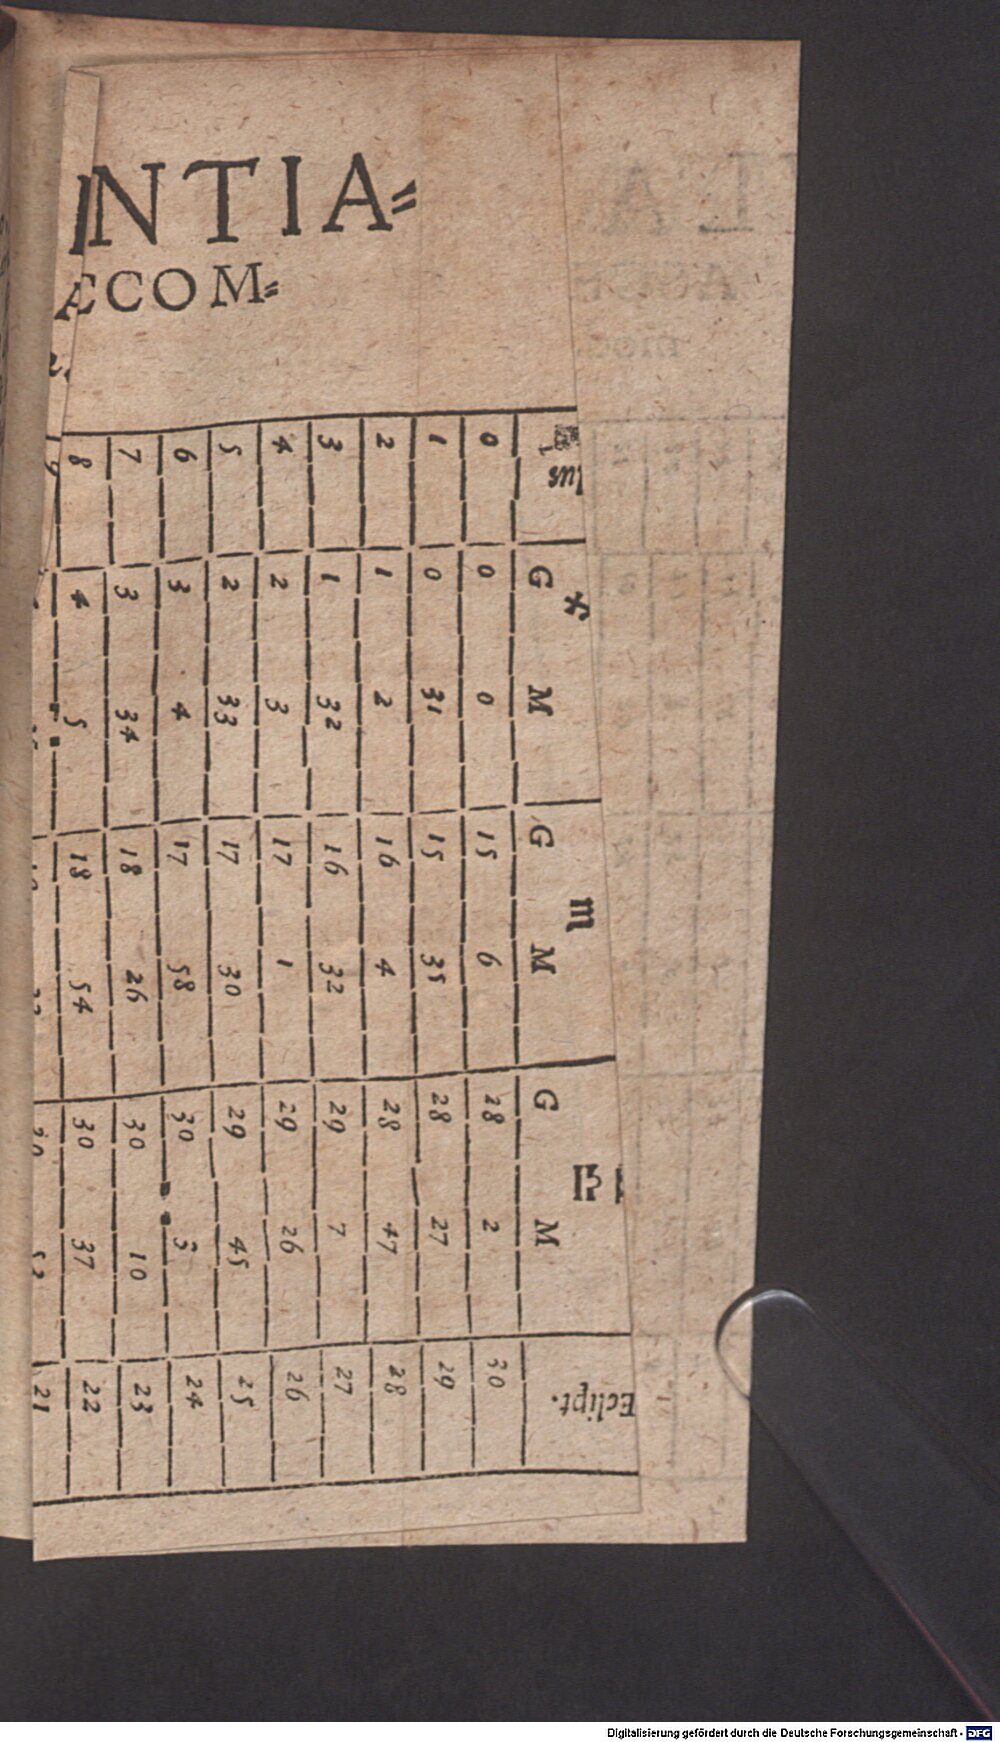 NTIA=
ÆCOM=
lus G M G M G M Eclipt.
0 0 0 15 6 28 2 30
1 0 31 15 35 28 27 29
2 1 2 16 4 28 47 28
3 1 32 16 32 29 7 27
4 2 3 17 1 29 26 26
5 2 33 17 30 29 45 25
6 3 4 17 58 30 5 24
7 3 34 18 26 30 10 23
8 4 5 18 54 30 37 22
9 21
Digitalisierung gefördert durch die Deutsche Forschungsgemeinschaft - DFG